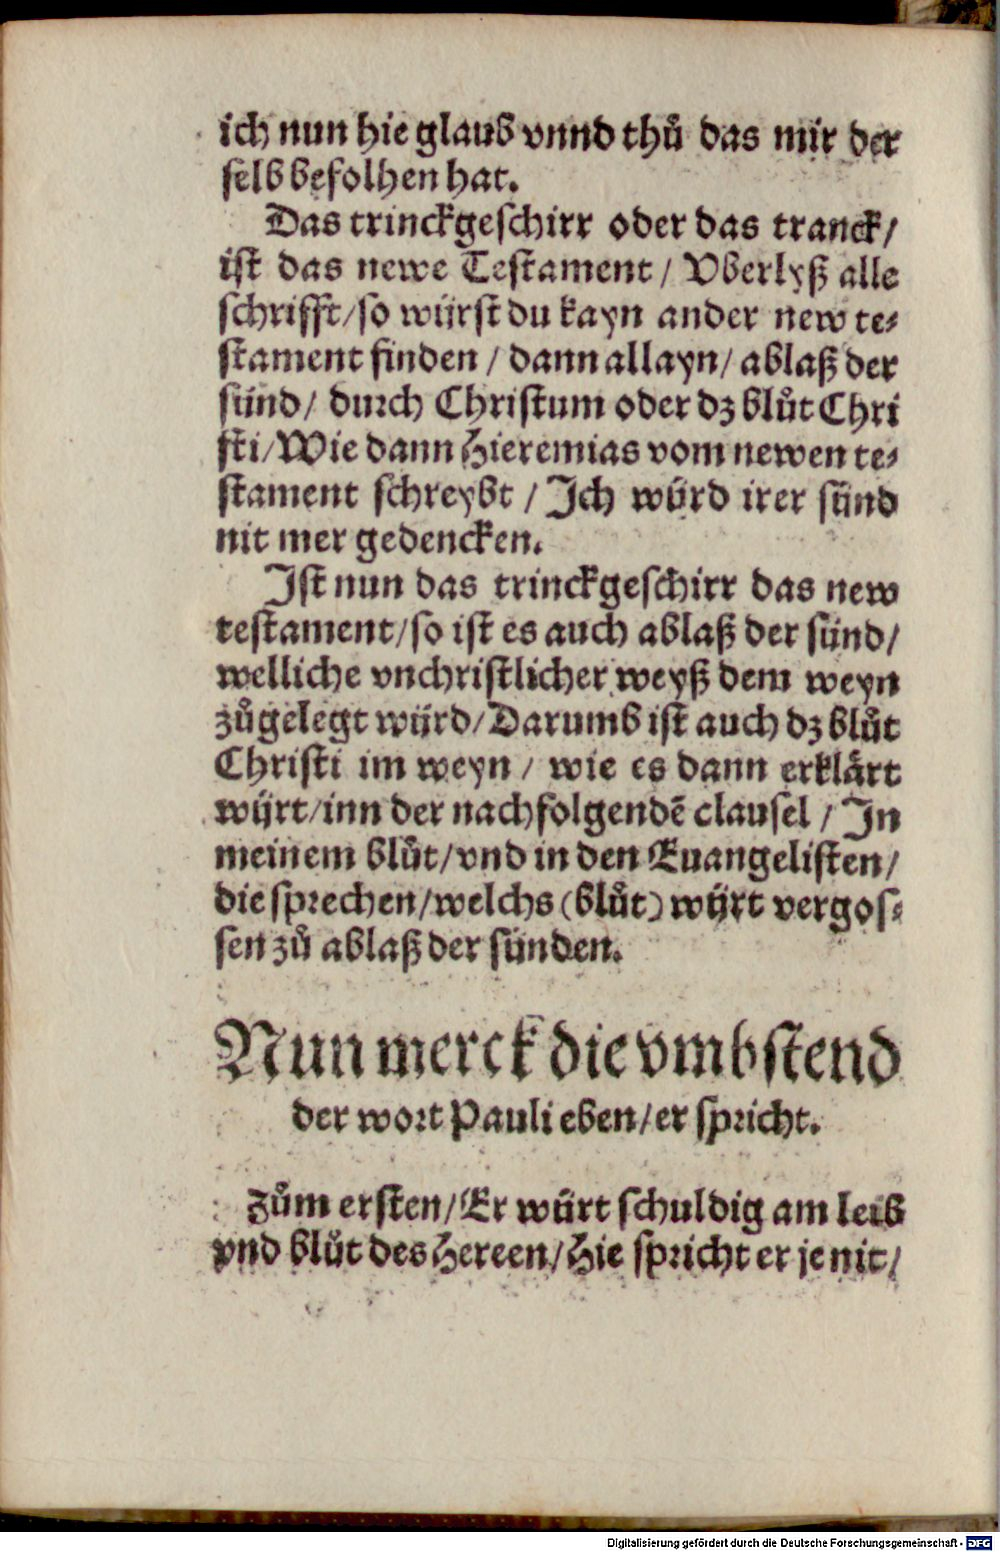 ich nun hie glaub vnnd thů das mir der
selb befolhen hat.
Das trinckgeschirr oder das tranck/
ist das newe Testament / Vberlyß alle
schrifft/so würst du kayn ander new te⸗
stament finden / dann allayn/ ablaß der
sünd/ durch Christum oder dz blůt Chri
sti/Wie dann Hieremias vom newen te⸗
stament schreybt / Ich würd irer sünd
nit mer gedencken.
Ist nun das trinckgeschirr das new
testament/so ist es auch ablaß der sünd/
welliche vnchristlicher weyß dem weyn
zůgelegt würd/Darumb ist auch dz blůt
Christi im weyn / wie es dann erklärt
würt/inn der nachfolgendē clausel / In
meinem blůt/vnd in den Euangelisten/
die sprechen/welchs (blůt) würt vergos⸗
sen zů ablaß der sünden.
Nun merck die vmbstend
der wort Pauli eben/er spricht.
Zům ersten/Er würt schuldig am leib
vnd blůt des Hereen/Hie spricht er je nit/
Digitalisierung gefördert durch die Deutsche Forschungsgemeinschaft - DFG